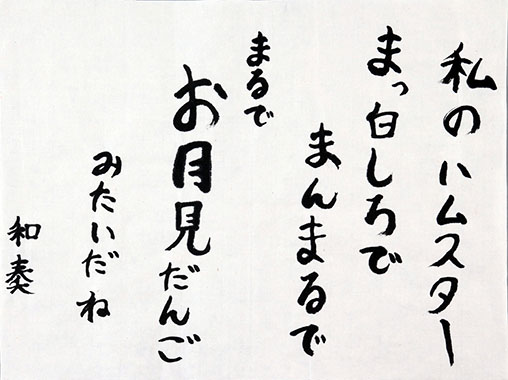 私のハムスター
まっ白しろで
まんまるで
まるで
お月見だんご
みたいだね
和奏